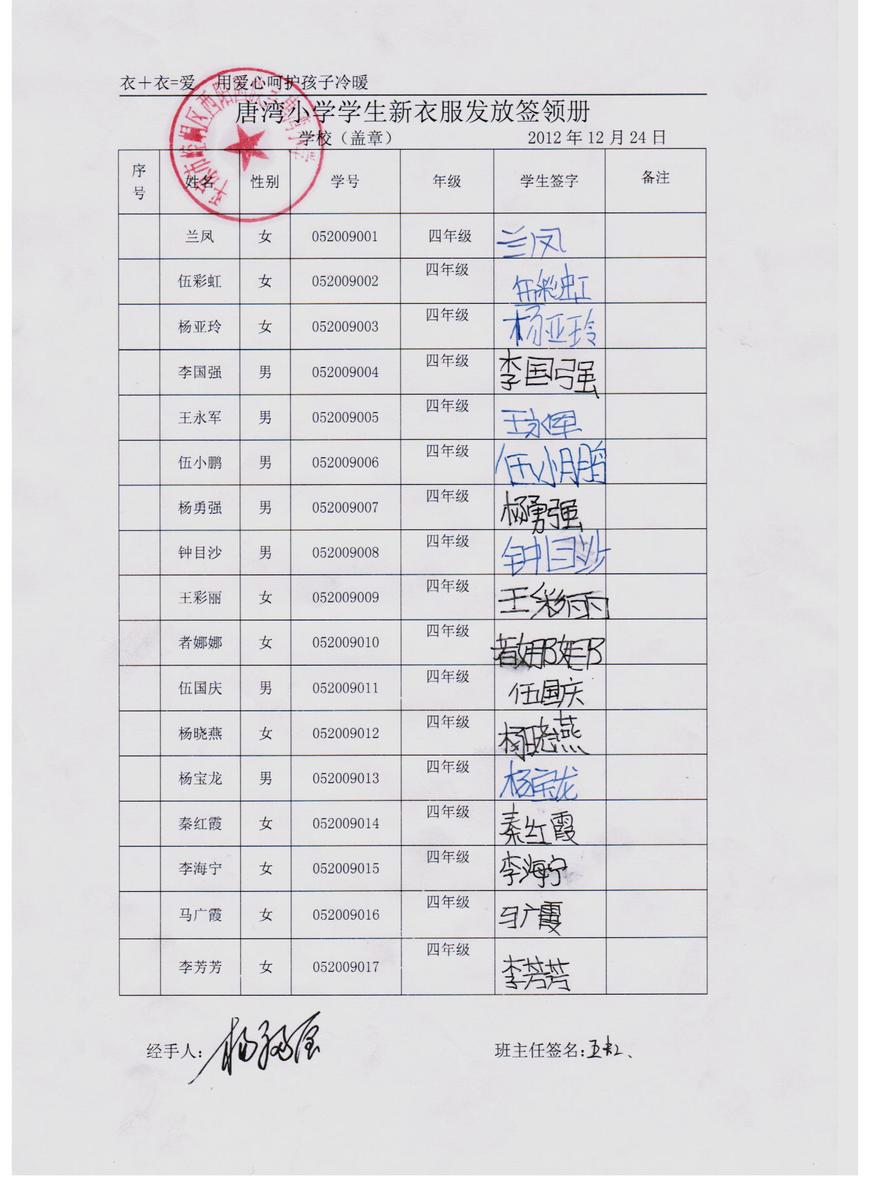 衣＋衣=爱 用爱心呵护孩子冷暖
唐湾小学学生新衣服发放签领册
学校（盖章） 2012年12月24日
序号 姓名 性别 学号 年级 学生签字 备注
兰凤 女 052009001 四年级 兰凤
伍彩虹 女 052009002 四年级 伍彩虹
杨亚玲 女 052009003 四年级 杨亚玲
李国强 男 052009004 四年级 李国强
王永军 男 052009005 四年级 王永军
伍小鹏 男 052009006 四年级 伍小鹏
杨勇强 男 052009007 四年级 杨勇强
钟目沙 男 052009008 四年级 钟目沙
王彩丽 女 052009009 四年级 王彩丽
者娜娜 女 052009010 四年级 者娜娜
伍国庆 男 052009011 四年级 伍国庆
杨晓燕 女 052009012 四年级 杨晓燕
杨宝龙 男 052009013 四年级 杨宝龙
秦红霞 女 052009014 四年级 秦红霞
李海宁 女 052009015 四年级 李海宁
马广霞 女 052009016 四年级 马广霞
李芳芳 女 052009017 四年级 李芳芳
经手人: 班主任签名: